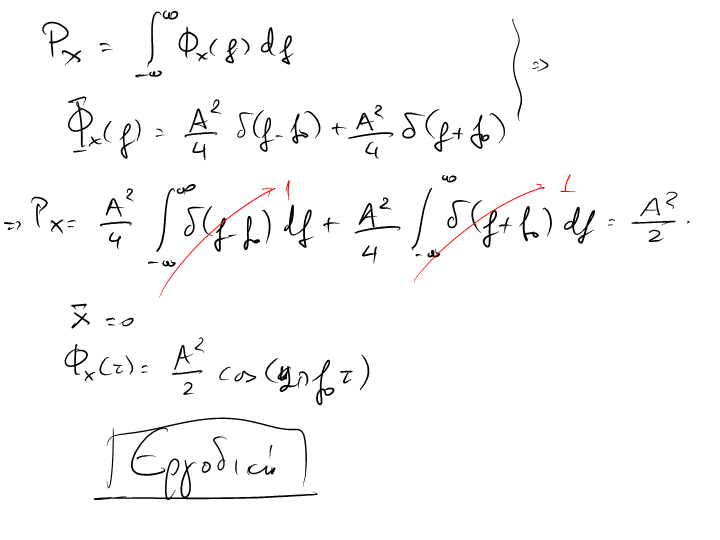 P_x = ∫_{-∞}^{∞} Φ_x(f) df } ⇒
Φ_x(f) = A²/4 δ(f-f₀) + A²/4 δ(f+f₀)
⇒ P_x = A²/4 ∫_{-∞}^{∞} δ(f-f₀) df + A²/4 ∫_{-∞}^{∞} δ(f+f₀) df = A²/2 .
1 1
x̄ = 0
Φ_x(τ) = A²/2 cos( f₀ τ)
Εργοδική